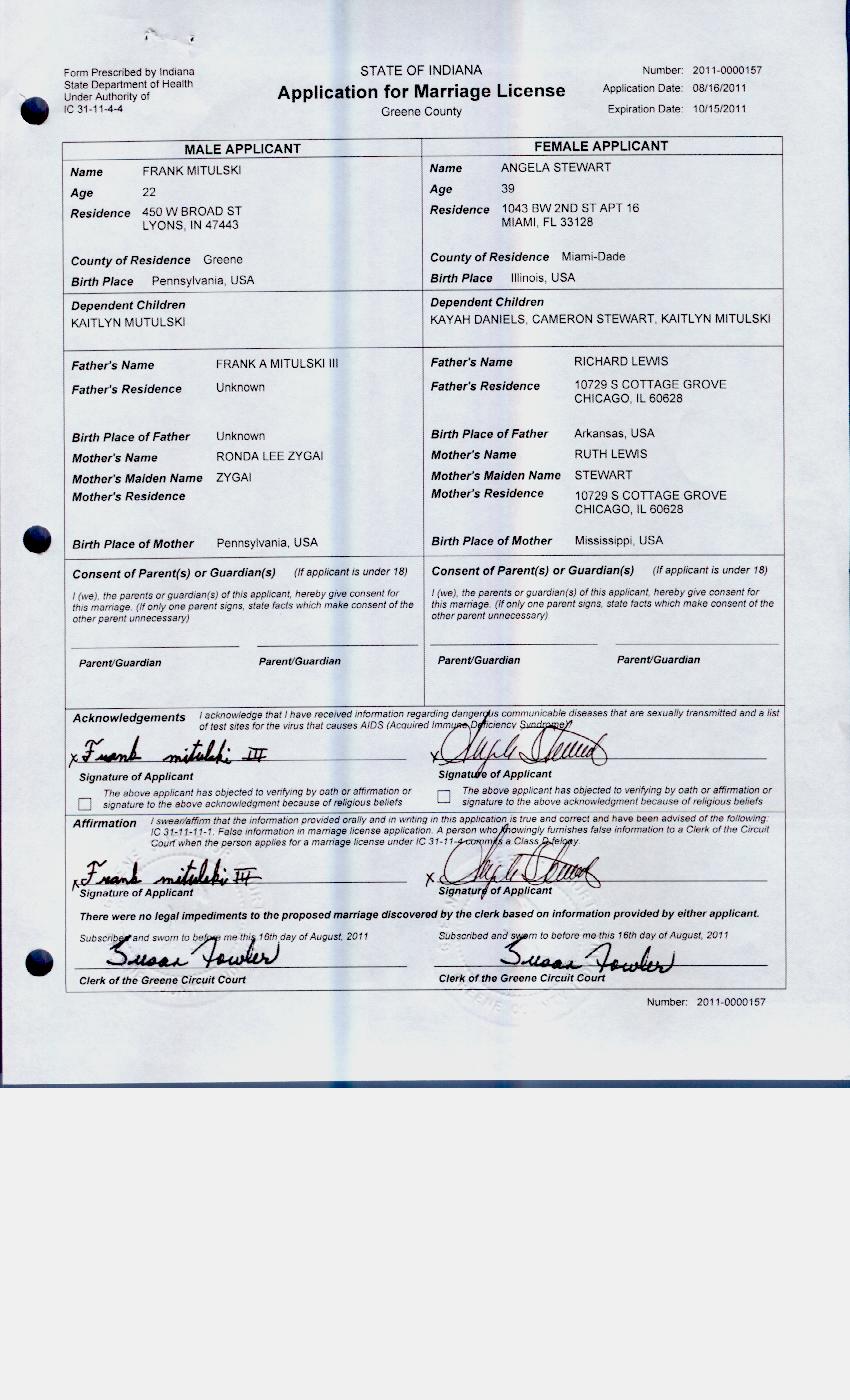 Form Prescribed by Indiana
State Department of Health
Under Authority of
IC 31-11-4-4
STATE OF INDIANA
Application for Marriage License
Greene County
Number: 2011-0000157
Application Date: 08/16/2011
Expiration Date: 10/15/2011
MALE APPLICANT
Name FRANK MITULSKI
Age 22
Residence 450 W BROAD ST
LYONS, IN 47443
County of Residence Greene
Birth Place Pennsylvania, USA
Dependent Children
KAITLYN MUTULSKI
Father's Name FRANK A MITULSKI III
Father's Residence Unknown
Birth Place of Father Unknown
Mother's Name RONDA LEE ZYGAI
Mother's Maiden Name ZYGAI
Mother's Residence
Birth Place of Mother Pennsylvania, USA
Consent of Parent(s) or Guardian(s) (If applicant is under 18)
I (we), the parents or guardian(s) of this applicant, hereby give consent for
this marriage. (If only one parent signs, state facts which make consent of the
other parent unnecessary)
Parent/Guardian Parent/Guardian
FEMALE APPLICANT
Name ANGELA STEWART
Age 39
Residence 1043 BW 2ND ST APT 16
MIAMI, FL 33128
County of Residence Miami-Dade
Birth Place Illinois, USA
Dependent Children
KAYAH DANIELS, CAMERON STEWART, KAITLYN MITULSKI
Father's Name RICHARD LEWIS
Father's Residence 10729 S COTTAGE GROVE
CHICAGO, IL 60628
Birth Place of Father Arkansas, USA
Mother's Name RUTH LEWIS
Mother's Maiden Name STEWART
Mother's Residence 10729 S COTTAGE GROVE
CHICAGO, IL 60628
Birth Place of Mother Mississippi, USA
Consent of Parent(s) or Guardian(s) (If applicant is under 18)
I (we), the parents or guardian(s) of this applicant, hereby give consent for
this marriage. (If only one parent signs, state facts which make consent of the
other parent unnecessary)
Parent/Guardian Parent/Guardian
Acknowledgements I acknowledge that I have received information regarding dangerous communicable diseases that are sexually transmitted and a list
of test sites for the virus that causes AIDS (Acquired Immune Deficiency Syndrome)
x Frank mitulski III x
Signature of Applicant Signature of Applicant
The above applicant has objected to verifying by oath or affirmation or
signature to the above acknowledgment because of religious beliefs
The above applicant has objected to verifying by oath or affirmation or
signature to the above acknowledgment because of religious beliefs
Affirmation I swear/affirm that the information provided orally and in writing in this application is true and correct and have been advised of the following:
IC 31-11-11-1. False information in marriage license application. A person who knowingly furnishes false information to a Clerk of the Circuit
Court when the person applies for a marriage license under IC 31-11-4 commits a Class D felony.
x Frank mitulski III x
Signature of Applicant Signature of Applicant
There were no legal impediments to the proposed marriage discovered by the clerk based on information provided by either applicant.
Subscribed and sworn to before me this 16th day of August, 2011 Subscribed and sworn to before me this 16th day of August, 2011
Susan Fowler Susan Fowler
Clerk of the Greene Circuit Court Clerk of the Greene Circuit Court
Number: 2011-0000157